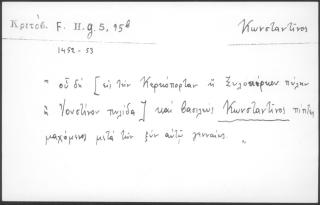 Κριτόβ. F. H. g. 5, 95b
Κωνσταντῖνος
1452-53
" οὗ δὴ [εἰς τὴν Κερκόπορταν ἢ Ξυλοπόρταν πύλην
ἢ Ἰουστίνου πυλίδα] καὶ βασιλεὺς Κωνσταντῖνος πίπτει
μαχόμενος μετὰ τῶν ξὺν αὐτῷ γενναίως. "